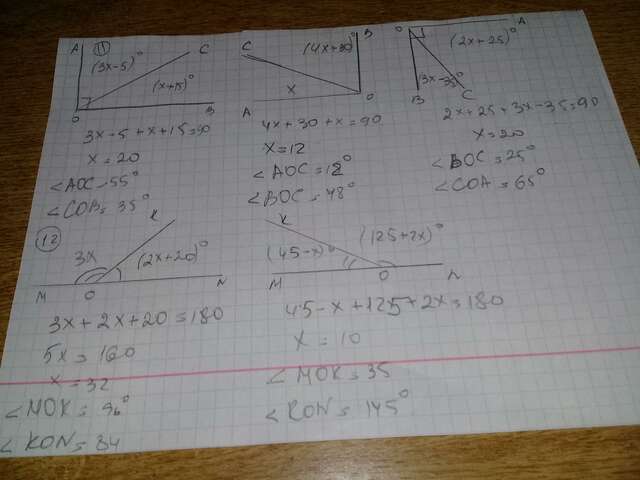 11
A
C
(3x-5)°
(x+15)°
O
B
3x-5+x+15=90
x=20
∠AOC=55°
∠COB=35°
C
B
(4x+30)°
x
A
O
4x+30+x=90
x=12
∠AOC=12°
∠BOC=48°
O
A
(2x+25)°
(3x-35)°
B
C
2x+25+3x-35=90
x=20
∠BOC=25°
∠COA=65°
12
K
3x
(2x+20)°
M
O
N
3x+2x+20=180
5x=160
x=32
∠MOK=96°
∠KON=84
K
(45-x)°
(125+2x)°
M
O
N
45-x+125+2x=180
x=10
∠MOK=35
∠KON=145°